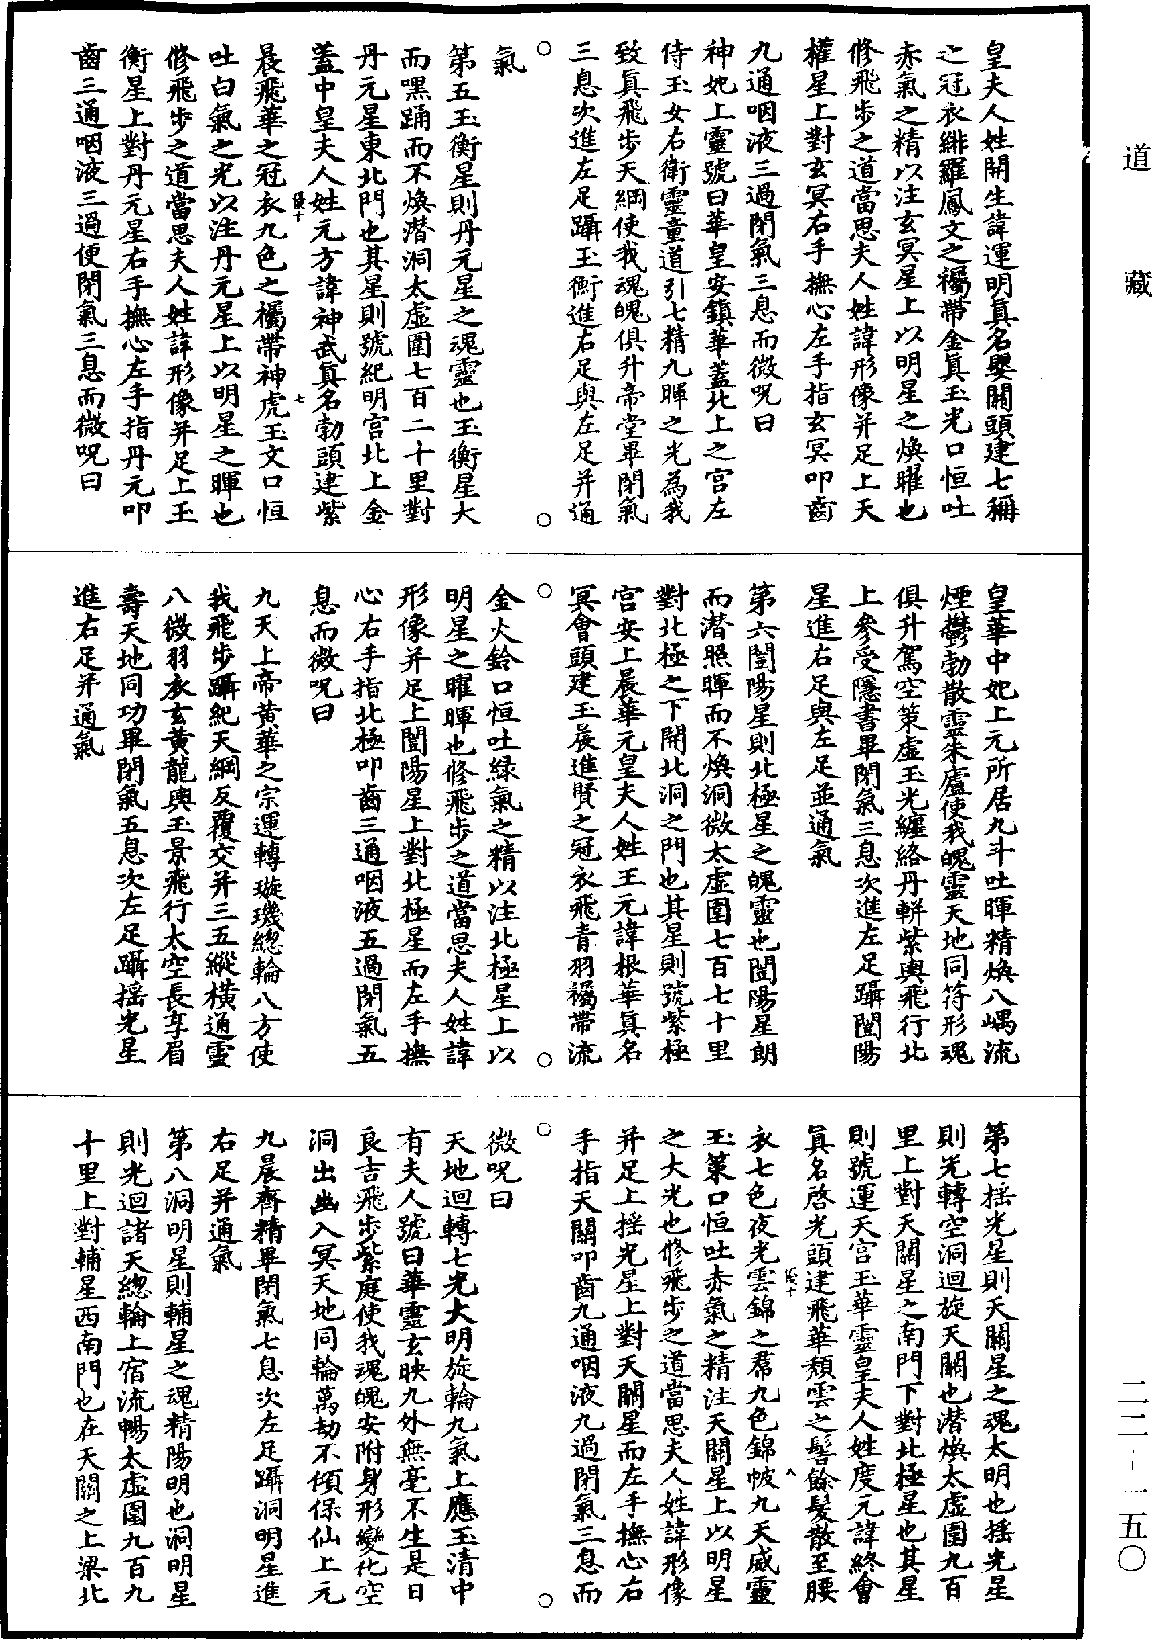 道藏
皇夫人姓開生諱運明真名嬰關頭建七稱
之冠衣緋羅鳳文之襡帶金真玉光口恒吐
赤氣之精以注玄冥星上以明星之煥曜也
修飛步之道當思夫人姓諱形像并足上天
權星上對玄冥右手撫心左手指玄冥叩齒
九通咽液三過閉氣三息而微呪曰
神妃上靈號曰華皇安鎮華蓋北上之宮左
侍玉女右衛靈童道引七精九暉之光為我
致真飛步天綱使我魂魄俱升帝堂畢閉氣
三息次進左足躡玉衡進右足與左足并通
氣
第五玉衡星則丹元星之魂靈也玉衡星大
而嘿踊而不煥潛洞太虛圍七百二十里對
丹元星東北門也其星則號紀明宮北上金
蓋中皇夫人姓元方諱神武真名勃頭建紫
晨飛華之冠衣九色之襡帶神虎玉文口恒
吐白氣之光以注丹元星上以明星之暉也
修飛步之道當思夫人姓諱形像并足上玉
衡星上對丹元星右手撫心左手指丹元叩
齒三通咽液三過便閉氣三息而微呪曰
皇華中妃上元所居九斗吐暉精煥八嵎流
煙鬱勃散靈朱廬使我魄靈天地同符形魂
俱升駕空策虛玉光纏絡丹軿紫輿飛行北
上參受隱書畢閉氣三息次進左足躡闓陽
星進右足與左足並通氣
第六闓陽星則北極星之魄靈也闓陽星朗
而潛照暉而不煥洞微太虛圍七百七十里
對北極之下開北洞之門也其星則號紫極
宮安上晨華元皇夫人姓王元諱根華真名
冥會頭建玉晨進賢之冠衣飛青羽襡帶流
金火鈴口恒吐綠氣之精以注北極星上以
明星之曜暉也修飛步之道當思夫人姓諱
形像并足上闓陽星上對北極星而左手撫
心右手指北極叩齒三通咽液五過閉氣五
息而微呪曰
九天上帝黃華之宗運轉璇璣總輪八方使
我飛步躡紀天綱反覆交并三五縱橫通靈
八微羽衣玄黃龍輿玉景飛行太空長享眉
壽天地同功畢閉氣五息次左足躡搖光星
進右足并通氣
第七搖光星則天關星之魂太明也搖光星
則光轉空洞迴旋天關也潛煥太虛圍九百
里上對天關星之南門下對北極星也其星
則號運天宮玉華靈皇夫人姓度元諱終會
真名啓光頭建飛華頹雲之髻餘髮散至腰
衣七色夜光雲錦之帬九色錦帔九天威靈
玉策口恒吐赤氣之精注天關星上以明星
之大光也修飛步之道當思夫人姓諱形像
并足上搖光星上對天關星而左手撫心右
手指天關叩齒九通咽液九過閉氣三息而
微呪曰
天地迴轉七光大明旋輪九氣上應玉清中
有夫人號曰華靈玄映九外無毫不生是日
良吉飛步紫庭使我魂魄安附身形變化空
洞出幽入冥天地同輪萬劫不傾保仙上元
九晨齊精畢閉氣七息次左足躡洞明星進
右足并通氣
第八洞明星則輔星之魂精陽明也洞明星
則光迴諸天總輪上宿流暢太虛圍九百九
十里上對輔星西南門也在天關之上梁北
二二-一五〇